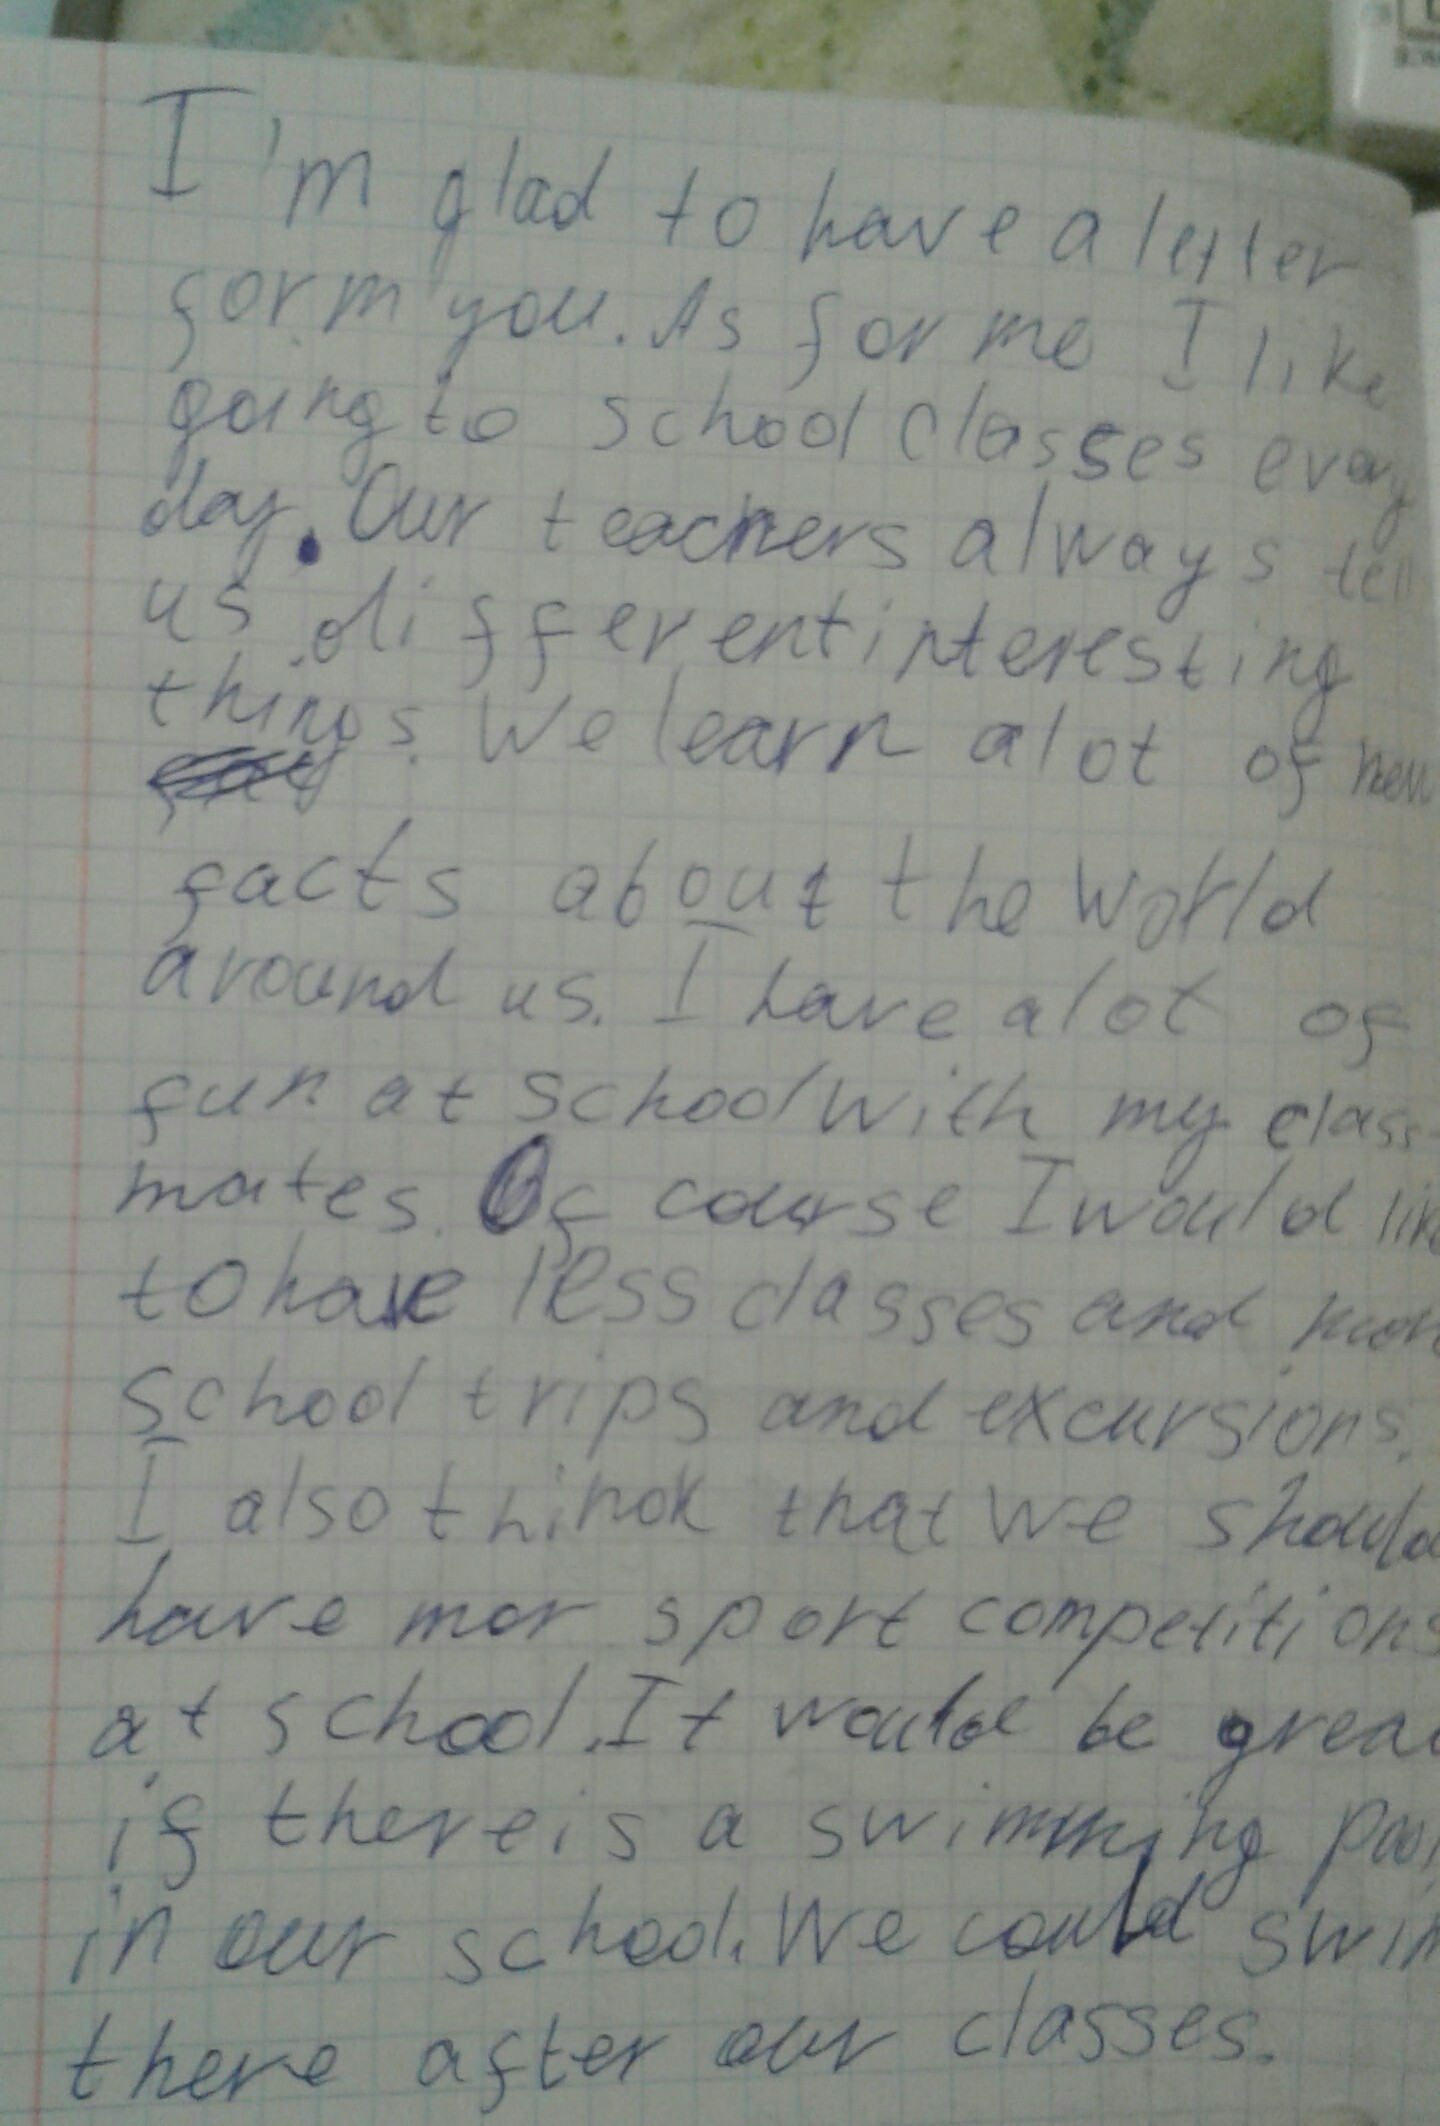 I'm glad to have a letter
form you. As for me I like
going to school classes every
day. Our teachers always tell
us different interesting
things. We learn a lot of new
facts about the world
around us. I have a lot of
fun at school with my class-
mates. Of course I would lik
to have less classes and mor
school trips and excursions.
I also think that we should
have mor sport competitions
at school. It would be grea
if there is a swimming poo
in our school. We could swim
there after our classes.